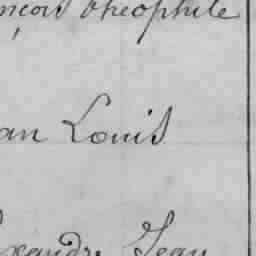 nçois théophile
an Louis
exandre Jean